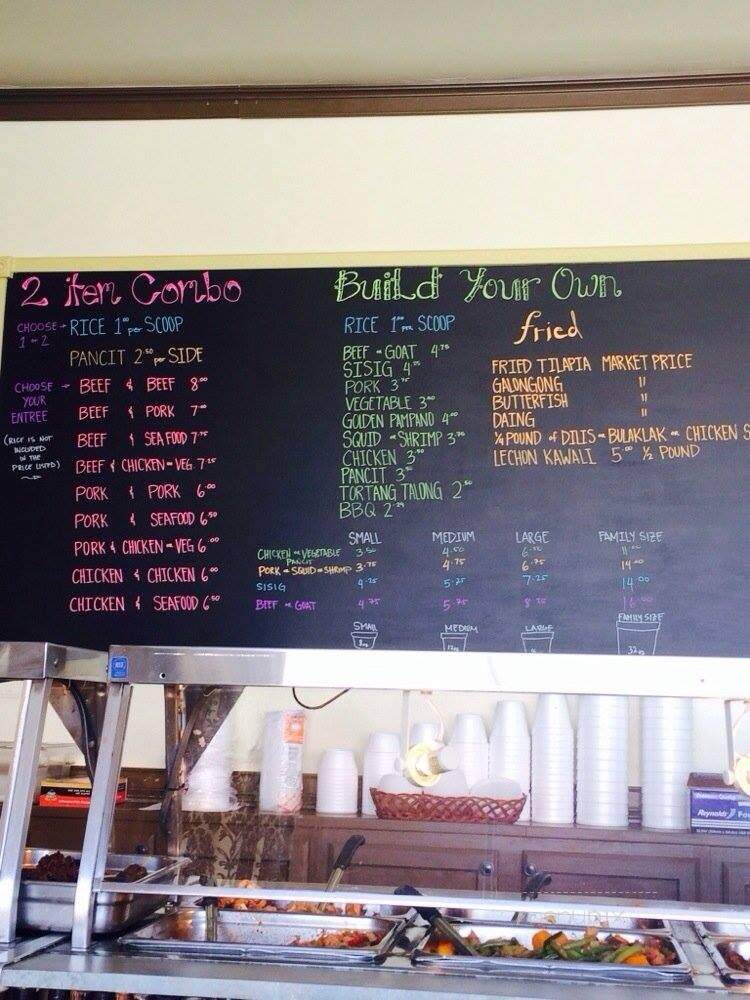 2 item Combo
CHOOSE → RICE 1⁰⁰ per SCOOP
1 or 2
PANCIT 2⁵⁰ per SIDE
CHOOSE → BEEF & BEEF 8⁰⁰
YOUR
ENTREE BEEF & PORK 7⁰⁰
(RICE IS NOT
INCLUDED
IN THE
PRICE LISTED)
BEEF & SEAFOOD 7⁷⁵
BEEF & CHICKEN or VEG 7²⁵
PORK & PORK 6⁰⁰
PORK & SEAFOOD 6⁵⁰
PORK & CHICKEN or VEG 6⁰⁰
CHICKEN & CHICKEN 6⁰⁰
CHICKEN & SEAFOOD 6⁵⁰
Build Your Own
RICE 1⁰⁰ per SCOOP
BEEF or GOAT 4⁷⁵
SISIG 4²⁵
PORK 3⁷⁵
VEGETABLE 3⁵⁰
GOLDEN PAMPANO 4⁰⁰
SQUID or SHRIMP 3⁷⁵
CHICKEN 3⁵⁰
PANCIT 3⁵⁰
TORTANG TALONG 2⁵⁰
BBQ 2
fried
FRIED TILAPIA MARKET PRICE
GALONGONG "
BUTTERFISH "
DAING "
¼ POUND of DILIS or BULAKLAK or CHICKEN S
LECHON KAWALI 5⁰⁰ ½ POUND
SMALL MEDIUM LARGE FAMILY SIZE
CHICKEN or VEGETABLE PANCIT 3.50 4.50 6
PORK or SQUID or SHRIMP 3.75 4.75 6.75 14⁰⁰
SISIG 4.25 5.25 7.25 14⁰⁰
BEEF or GOAT 4.75 5.75
SMALL MEDIUM LARGE FAMILY SIZE
8oz 12oz 32oz
Reynolds